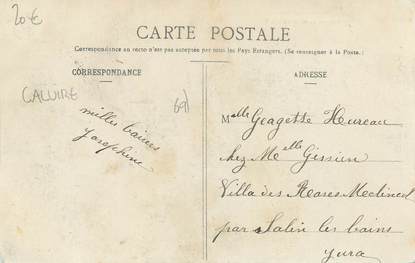 20€
CARTE POSTALE
Correspondance au recto n'est pas acceptée par tous les Pays Etrangers. (Se renseigner à la Poste.)
CORRESPONDANCE
ADRESSE
CALUIRE
69)
milles baises
Josephine
Melle Geogette Hureau
chez Melle
Villa des Roses
par Salin les bains
Jura